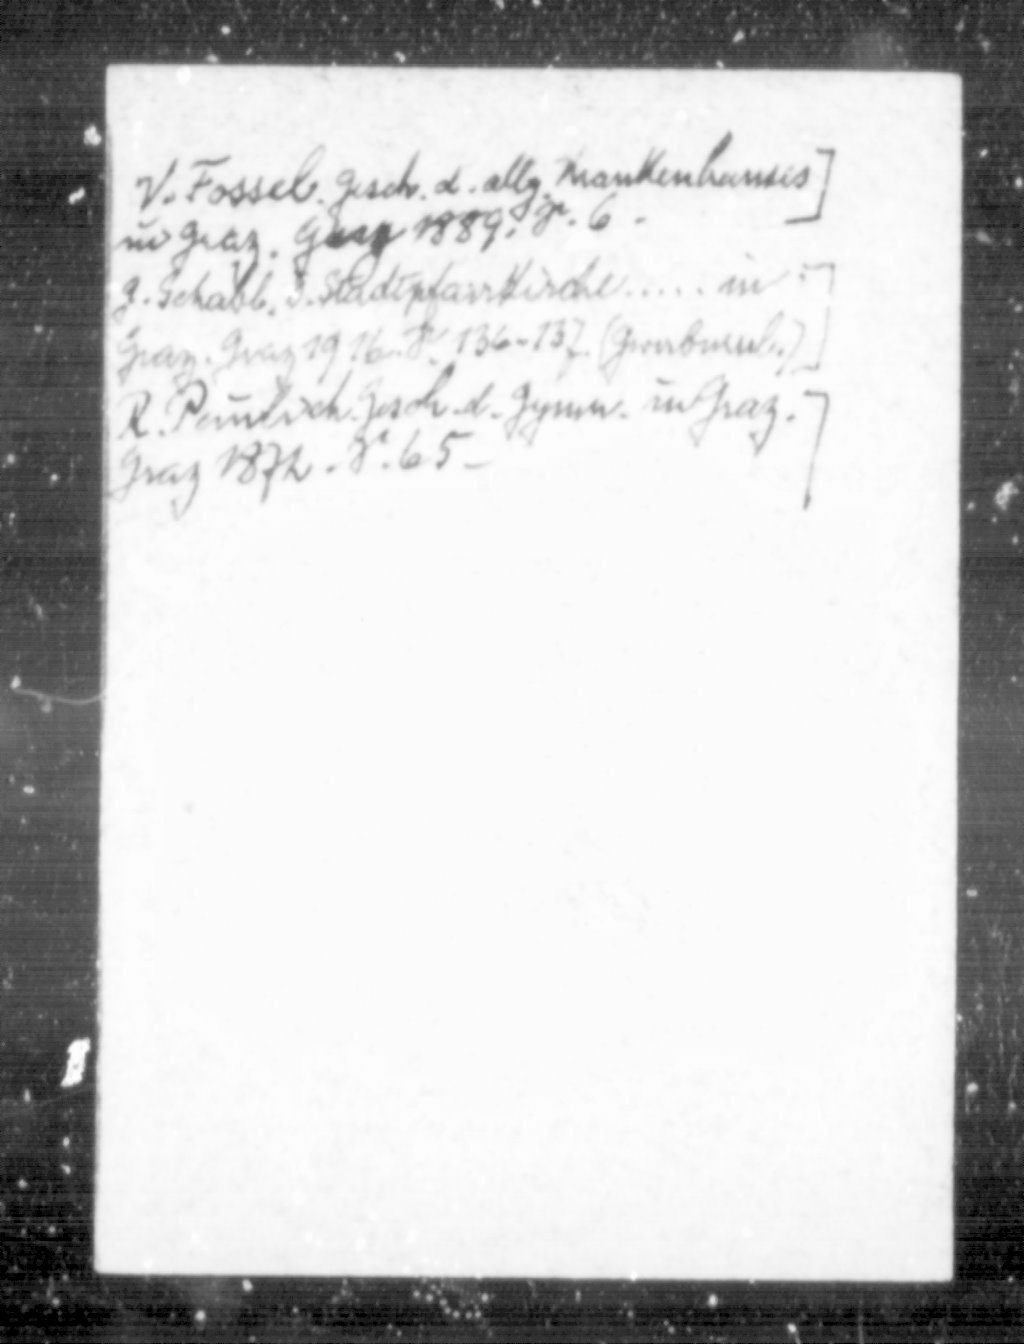 V. Fossel. Gesch. d. allg. Krankenhauses]
in Graz. Graz 1889. S. 6.
J. Schabl. D. Stadtpfarrkirche ..... in
Graz. Graz 1916. S. 136-137.
R. Peinlich. Gesch. d. Gymn. in Graz.
Graz 1872. S. 65